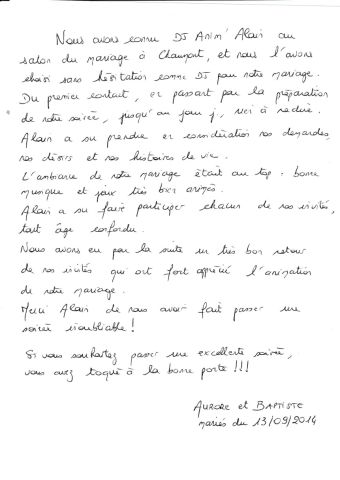 Nous avons connu DJ Anim' Alain au
salon du mariage à Chaumont, et nous l'avons
choisi sans hésitation comme DJ pour notre mariage.
Du premier contact, en passant par la préparation
de notre soirée, jusqu'au jour J, rien à redire.
Alain a su prendre en considération nos demandes,
nos désirs et nos histoires de vie.
L'ambiance de notre mariage était au top : bonne
musique et jeux très bien animés.
Alain a su faire participer chacun de nos invités,
tout âge confondu.
Nous avons eu par la suite un très bon retour
de nos invités qui ont fort apprécié l'animation
de notre mariage.
Merci Alain de nous avoir fait passer une
soirée inoubliable !
Si vous souhaitez passer une excellente soirée,
vous avez toqué à la bonne porte !!!
AURORE et BAPTISTE
mariés du 13/09/2014